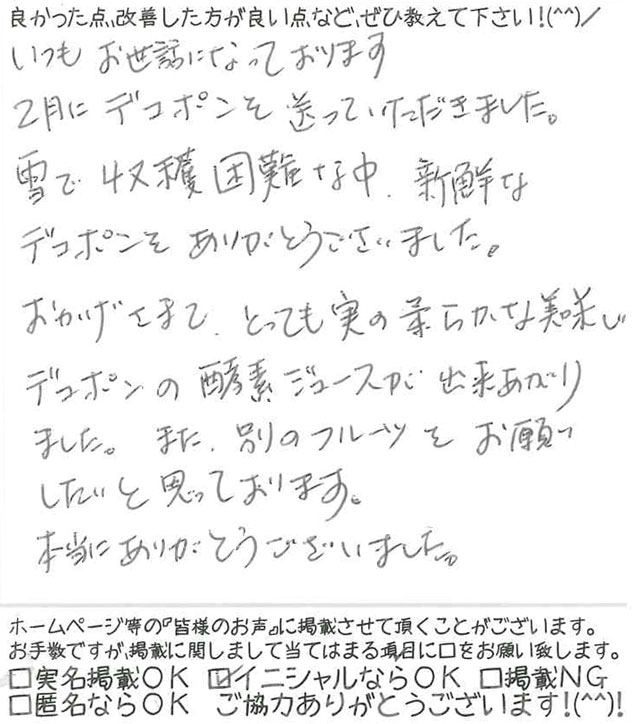 良かった点、改善した方が良い点など、ぜひ教えて下さい!(^^)/
いつも お世話になっております
2月に デコポンを 送っていただきました。
雪で 収穫困難な中、新鮮な
デコポンを ありがとうございました。
おかげさまで、とっても実の柔らかな美味しい
デコポンの 酵素ジュースが 出来あがり
ました。また、別のフルーツを お願い
したいと思っております。
本当にありがとうございました。
ホームページ等の『皆様のお声』に掲載させて頂くことがございます。
お手数ですが、掲載に関しまして当てはまる項目に□をお願い致します。
□実名掲載OK ☑イニシャルならOK □掲載NG
□匿名ならOK ご協力ありがとうございます!(^^)!